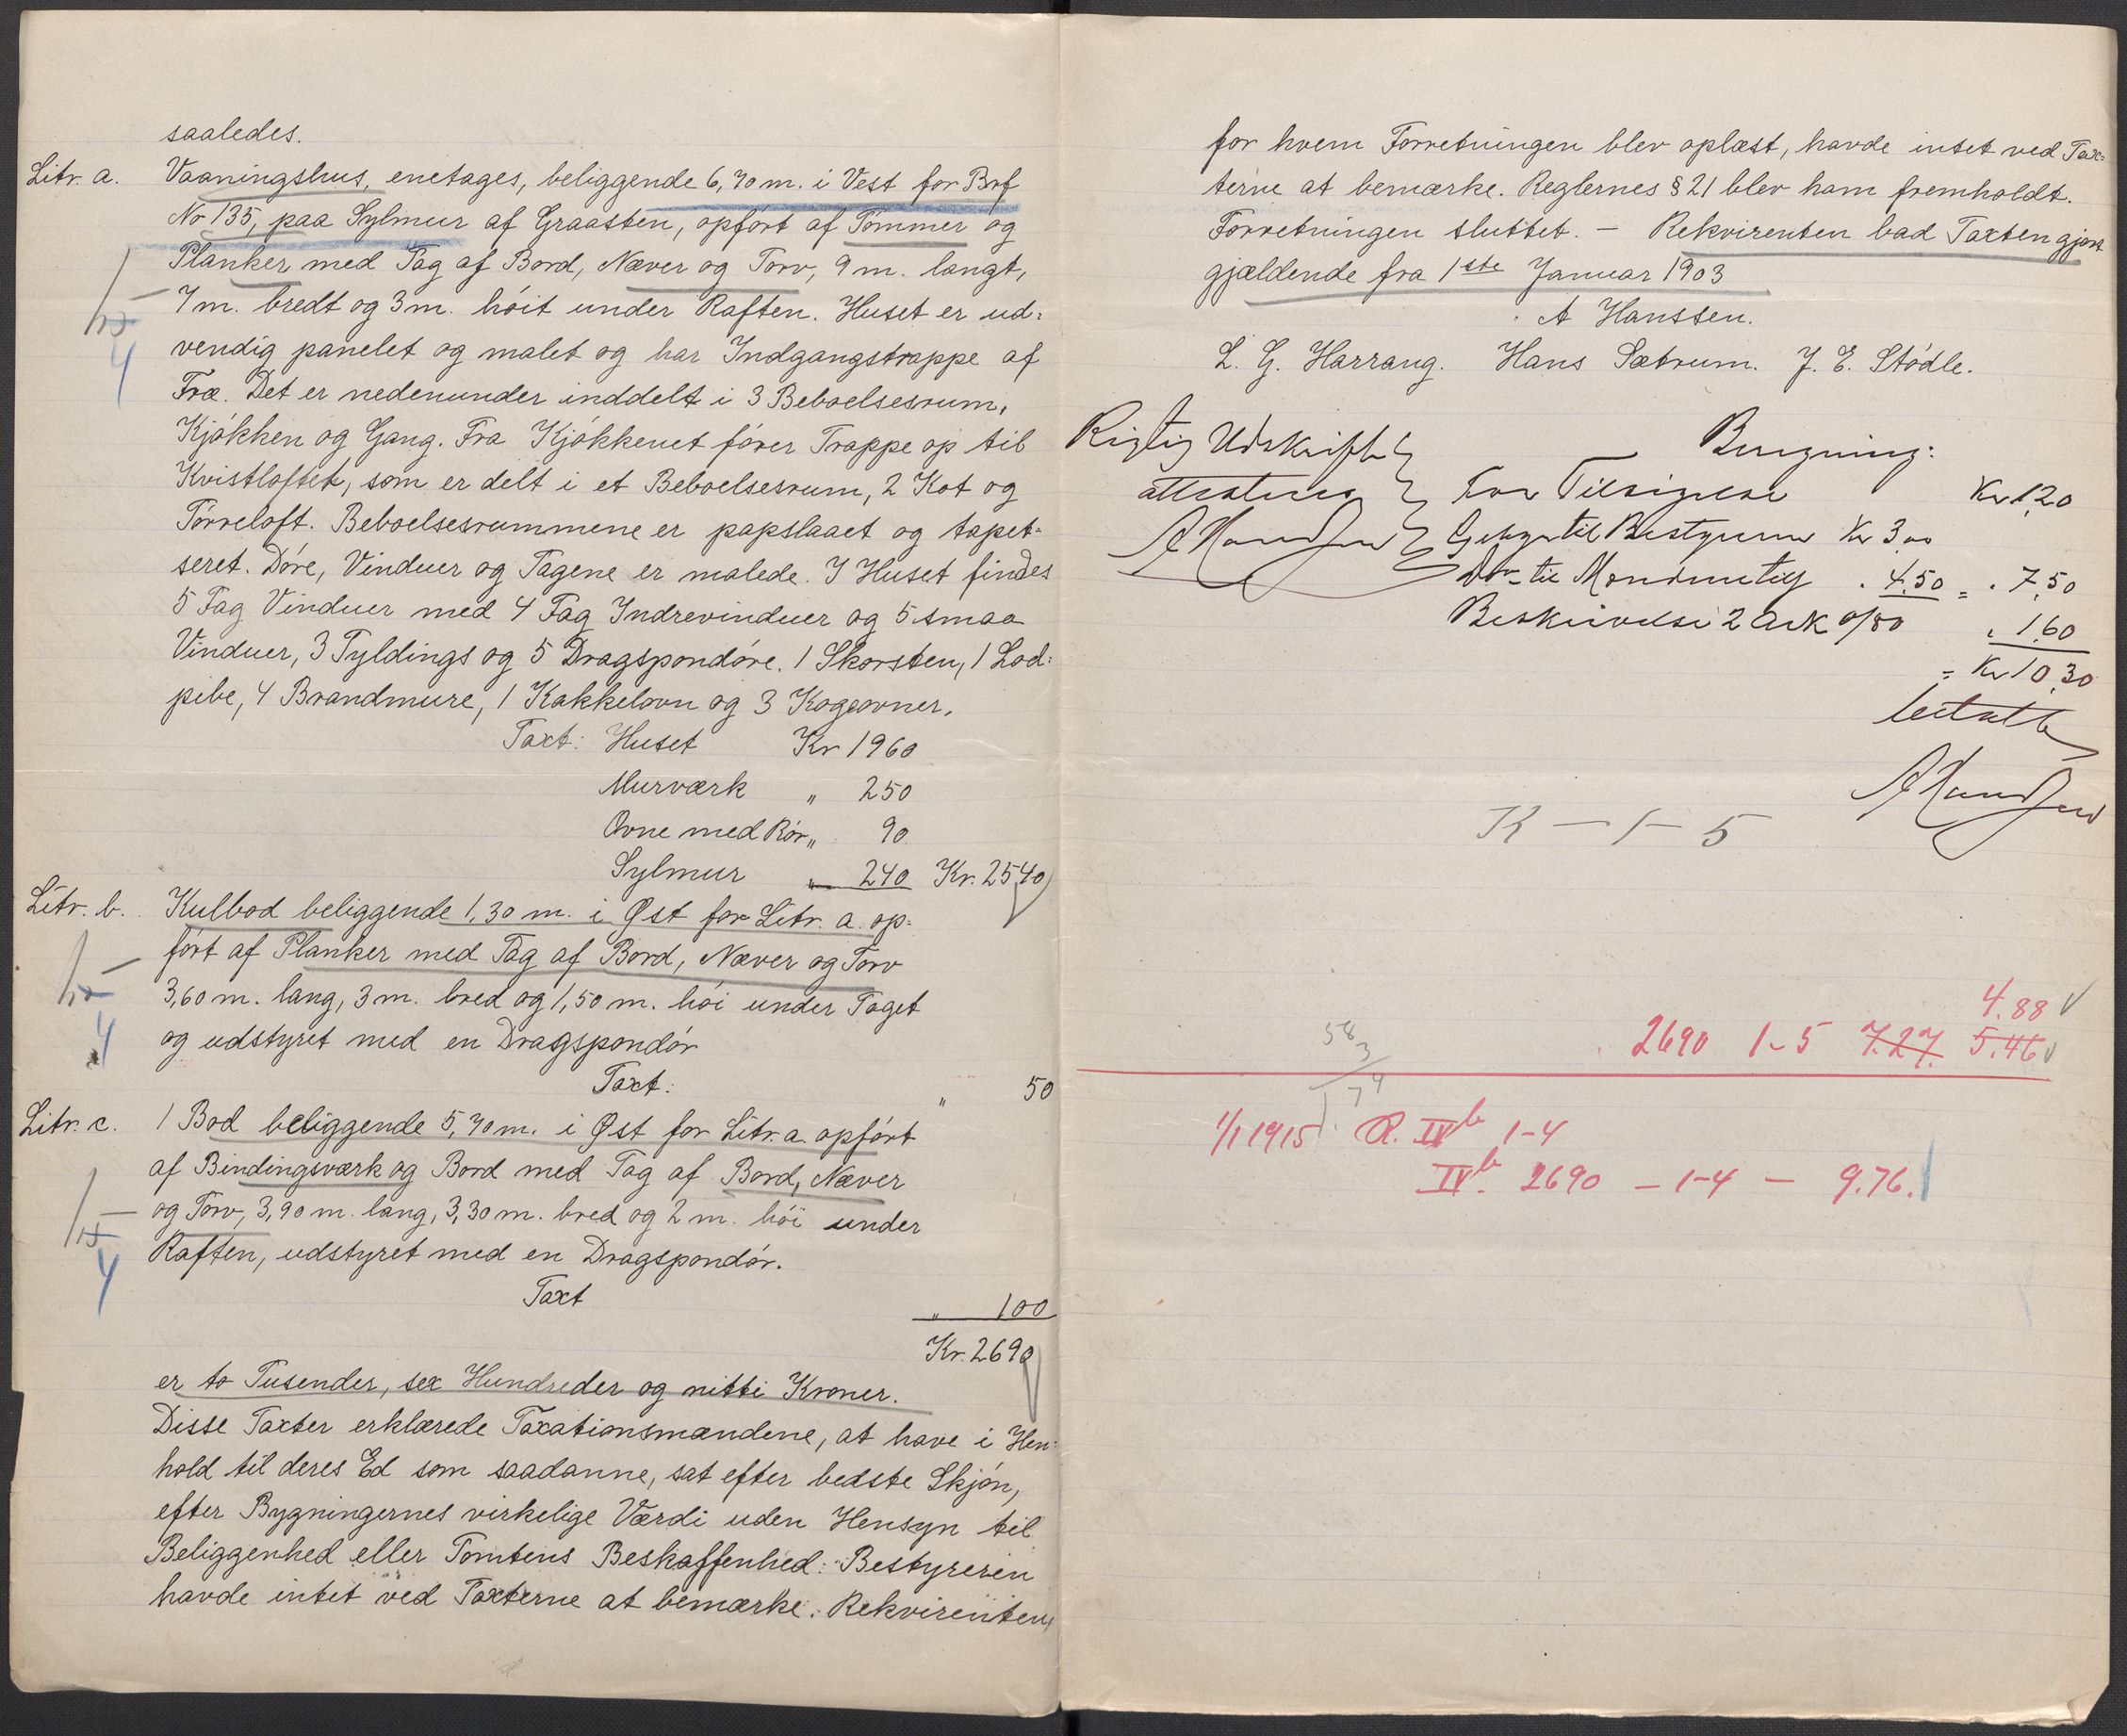 saaledes.
Litr. a. Vaaningshus, enetages, beliggende 6,70 m. i Vest for Brf
No 135, paa Sylmur af Graasten, opført af Tømmer og
Planker med Tag af Bord, Næver og Torv, 9 m. langt,
7 m. bredt og 3 m. høit under Raften. Huset er ud-
vendig panelet og malet og har Indgangstrappe af
Træ. Det er nedenunder inddelt i 3 Beboelsesrum,
Kjøkken og Gang. Fra Kjøkkenet fører Trappe op til
Kvistloftet, som er delt i et Beboelsesrum, 2 Kot og
Tørreloft. Beboelsesrummene er papslaaet og tapet-
seret. Døre, Vinduer og Tagene er malede. I Huset findes
5 Fag Vinduer med 4 Fag Indrevinduer og 5 smaa
Vinduer, 3 Fyldings og 5 Dragspondøre. 1 Skorsten, 1 Lod-
pibe, 4 Brandmure, 1 Kakkelovn og 3 Kogeovner.
Taxt: Huset Kr 1960
Murværk " 250
Ovne med Rør " 90
Sylmur " 240 Kr. 2540
Litr. b. Kulbod beliggende 1,30 m. i Øst for Litr. a. op-
ført af Planker med Tag af Bord, Næver og Torv
3,60 m. lang, 3 m. bred og 1,50 m. høi under Taget
4
og udstyret med en Dragspondør
Taxt: " 50
Litr. c. 1 Bod beliggende 5,70 m. i Øst for Litr. a. opført
af Bindingsværk og Bord med Tag af Bord, Næver
og Torv, 3,90 m. lang, 3,30 m. bred og 2 m. høi under
4
Raften, udstyret med en Dragspondør.
Taxt " 100
Kr. 2690
er to Tusender, sex Hundreder og nitti Kroner.
Disse Taxter erklærede Taxationsmændene, at have i Hen-
hold til deres Ed som saadanne, sat efter bedste Skjøn,
efter Bygningernes virkelige Værdi uden Hensyn til
Beliggenhed eller Tomtens Beskaffenhed. Bestyreren
havde intet ved Taxterne at bemærke. Rekvirenten,
for hvem Forretningen blev oplæst, havde intet ved Tax-
terne at bemærke. Reglernes § 21 blev ham fremholdt.
Forretningen sluttet. – Rekvirenten bad Taxten gjort
gjældende fra 1ste Januar 1903
A Hanssen.
L. G. Harrang. Hans Sætrum. J. E. Stødle.
Rigtig Udskrift
attesteres
A Hanssen
Beregning:
For Tilsigelse Kr 1,20
Gebyr til Bestyreren Kr 3,00
Do til Mændene 4,50 = 7,50
Beskrivelse 2 Ark 0/80 1,60
= Kr 10,30
betalt
A Hanssen
K – 1 – 5
4.88
2690 1-5 7.27. 5.46
58
3
174
1/1 1915 R. IVb 1-4
IVb. 2690 – 1-4 – 9.76.